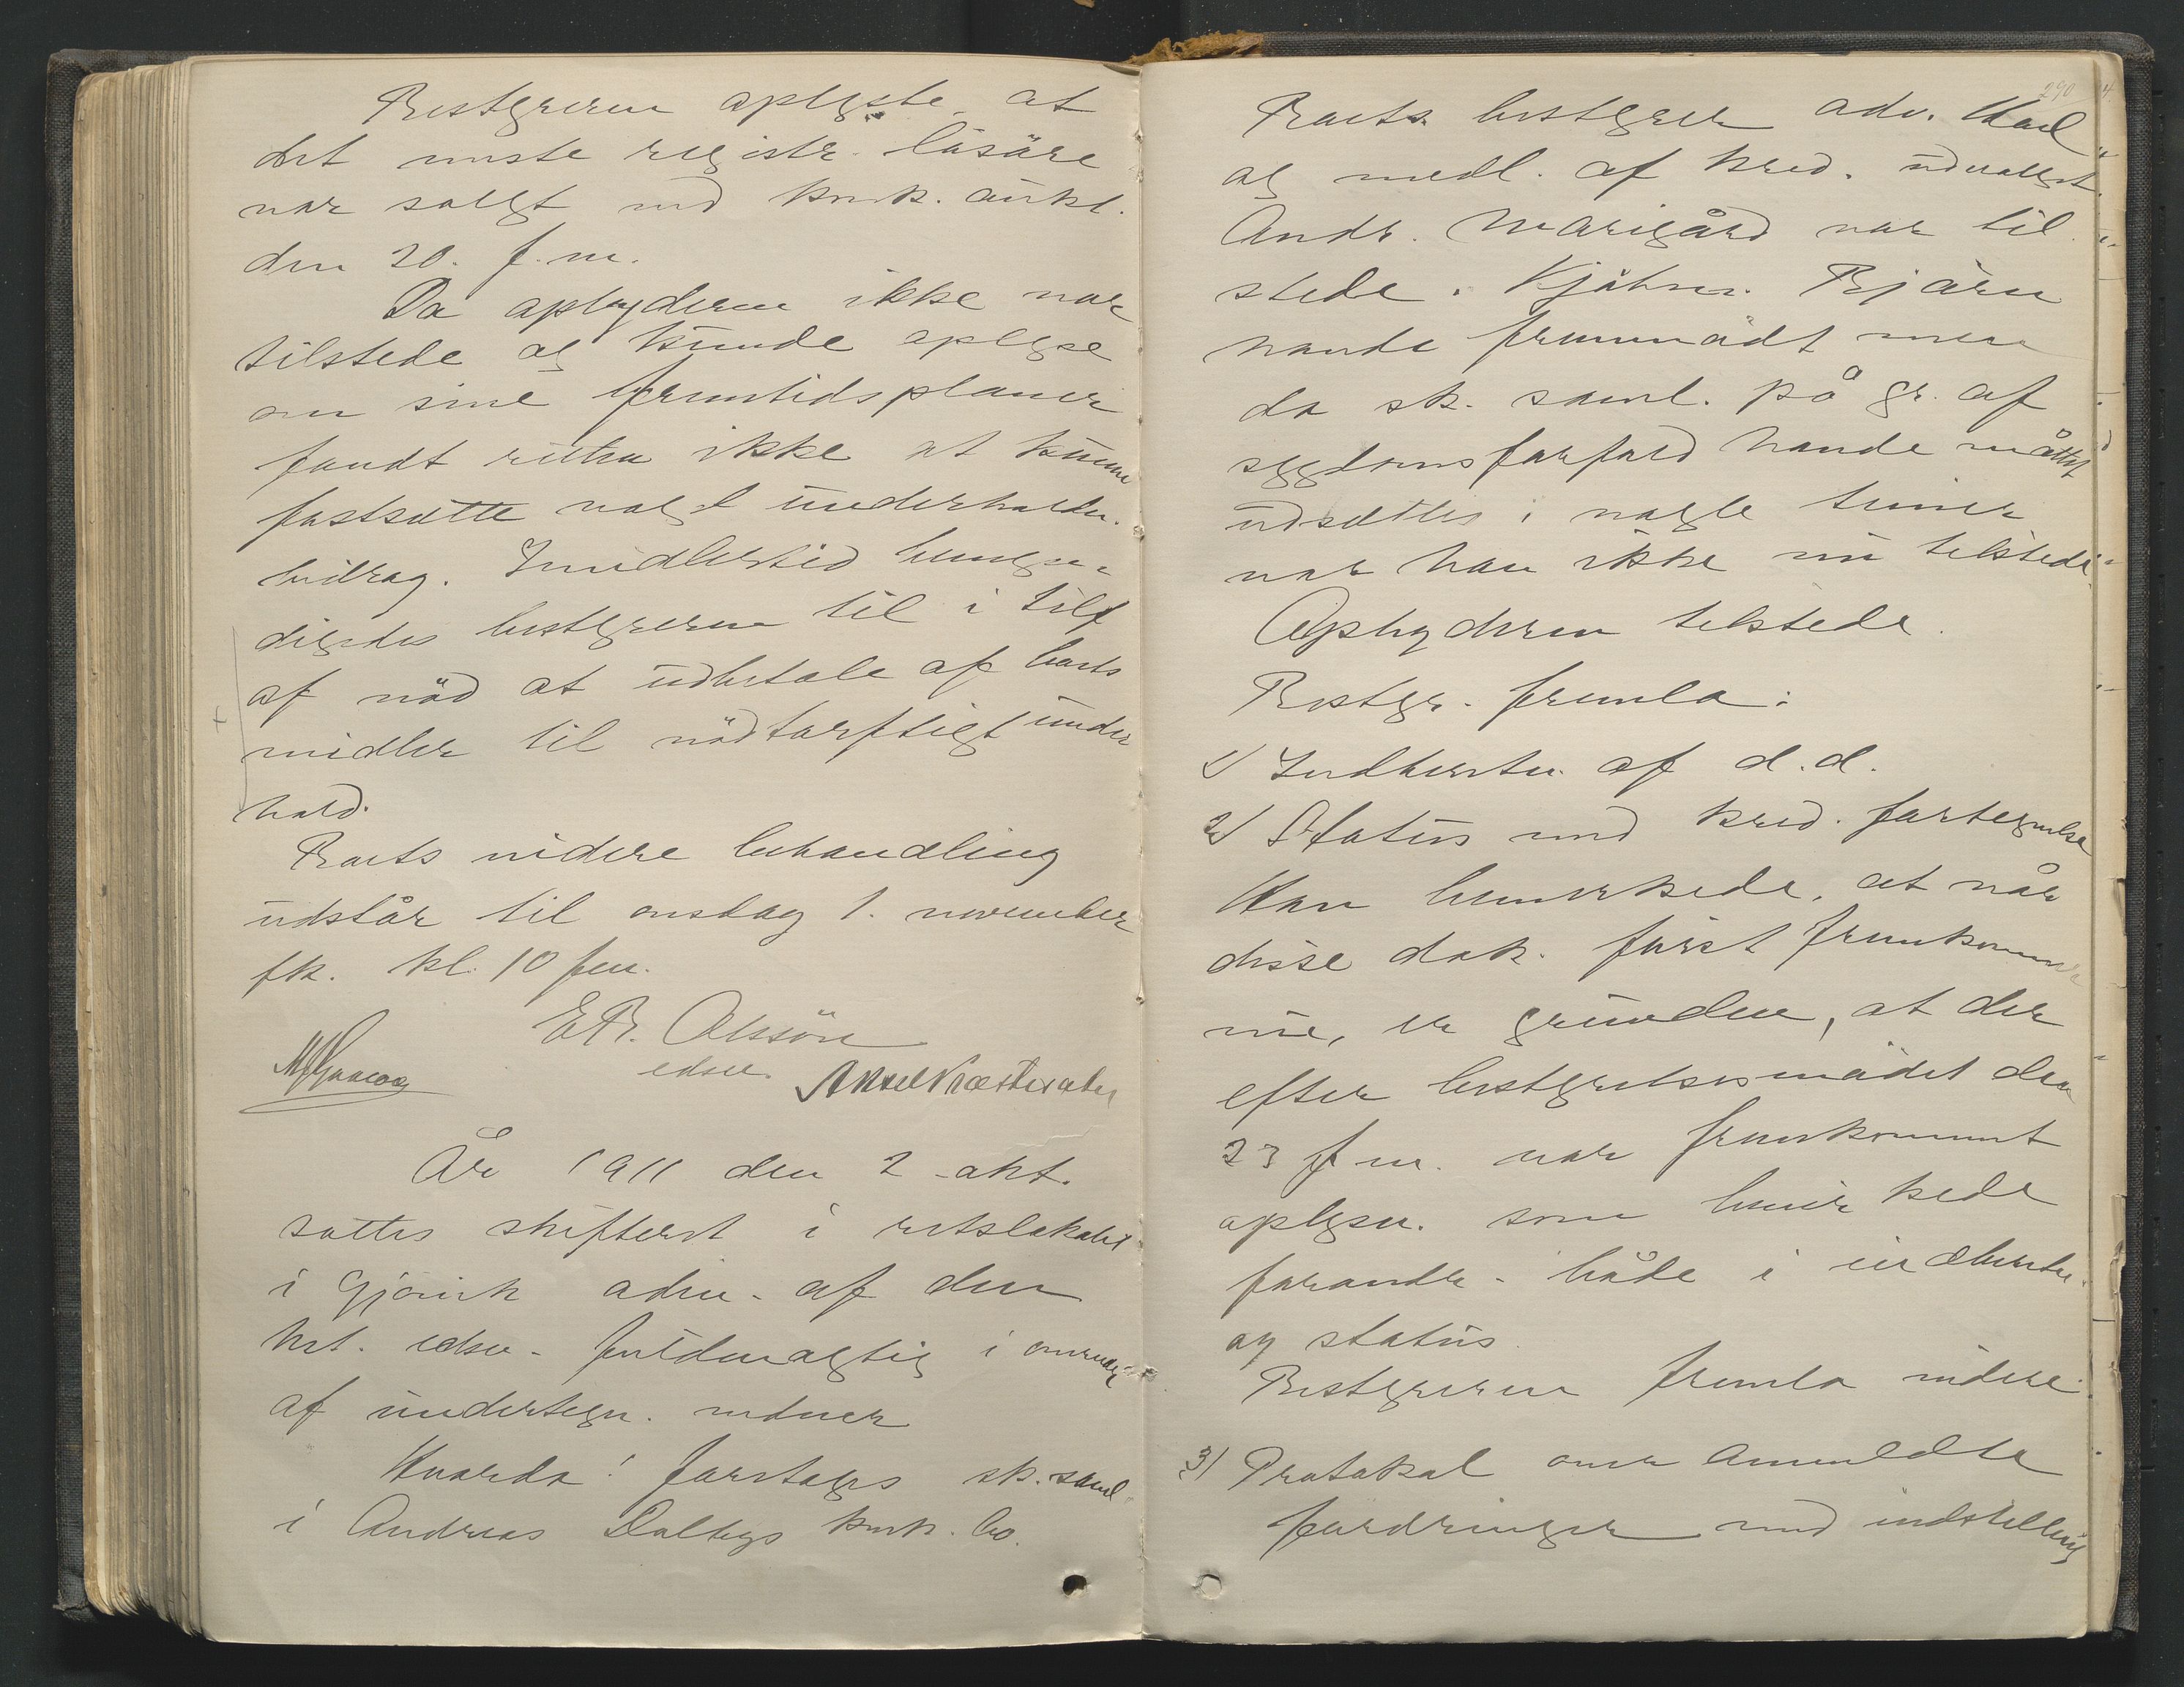 Bestyreren oplyste at
det meste registr. løsøre
var solgt ved konk. auks.
den 20. f.m.
Da opbyderen ikke var
tilstede og kunde oplyse
om sine fremtidsplaner
fandt retten ikke at kunne
fastsætte noget underholdn.
bidrag. Imidlertid bemyn-
digedes bestyreren til i tilf
af nød at udbetale af boets
midler til nødtørftigt under
hold.
Boets videre behandling
udstår til onsdag 1. november
fk. kl. 10 fm.
E.B. Olssön
edsv.
År 1911 den 2 okt.
sattes skifteret i retslokalet
i Gjøvik adm. af den
hst. edsv. fuldmægtig i overvær
af undertegn. vidner
Hvorda! foretages sk. saml.
i Andreas Dalbys konk. bo.
290
Boets bestyrer adv. Hoel
og medl. af kred. udvalget
Andr. Marigård var til
stede. Kjøbm. Bjørn
havde fremmødt men
da sk. saml. på gr. af
sygdomsforfald havde måttet
udsættes i nogle timer
var han ikke nu tilstede
Opbyderen tilstede.
Bestyr. fremla:
1) Indberetn. af d.d.
2) Status med kred. fortegnelse
Han bemerkede, at når
disse dok. først fremkommer
nu, er grunden, at der
efter bestyrelsesmødet den
23 f.m. var fremkommet
oplysn. som bevirkede
forandr. både i indberetn.
og status.
Bestyreren fremla videre
3) Protokol over anmeldte
fordringer med indstilling